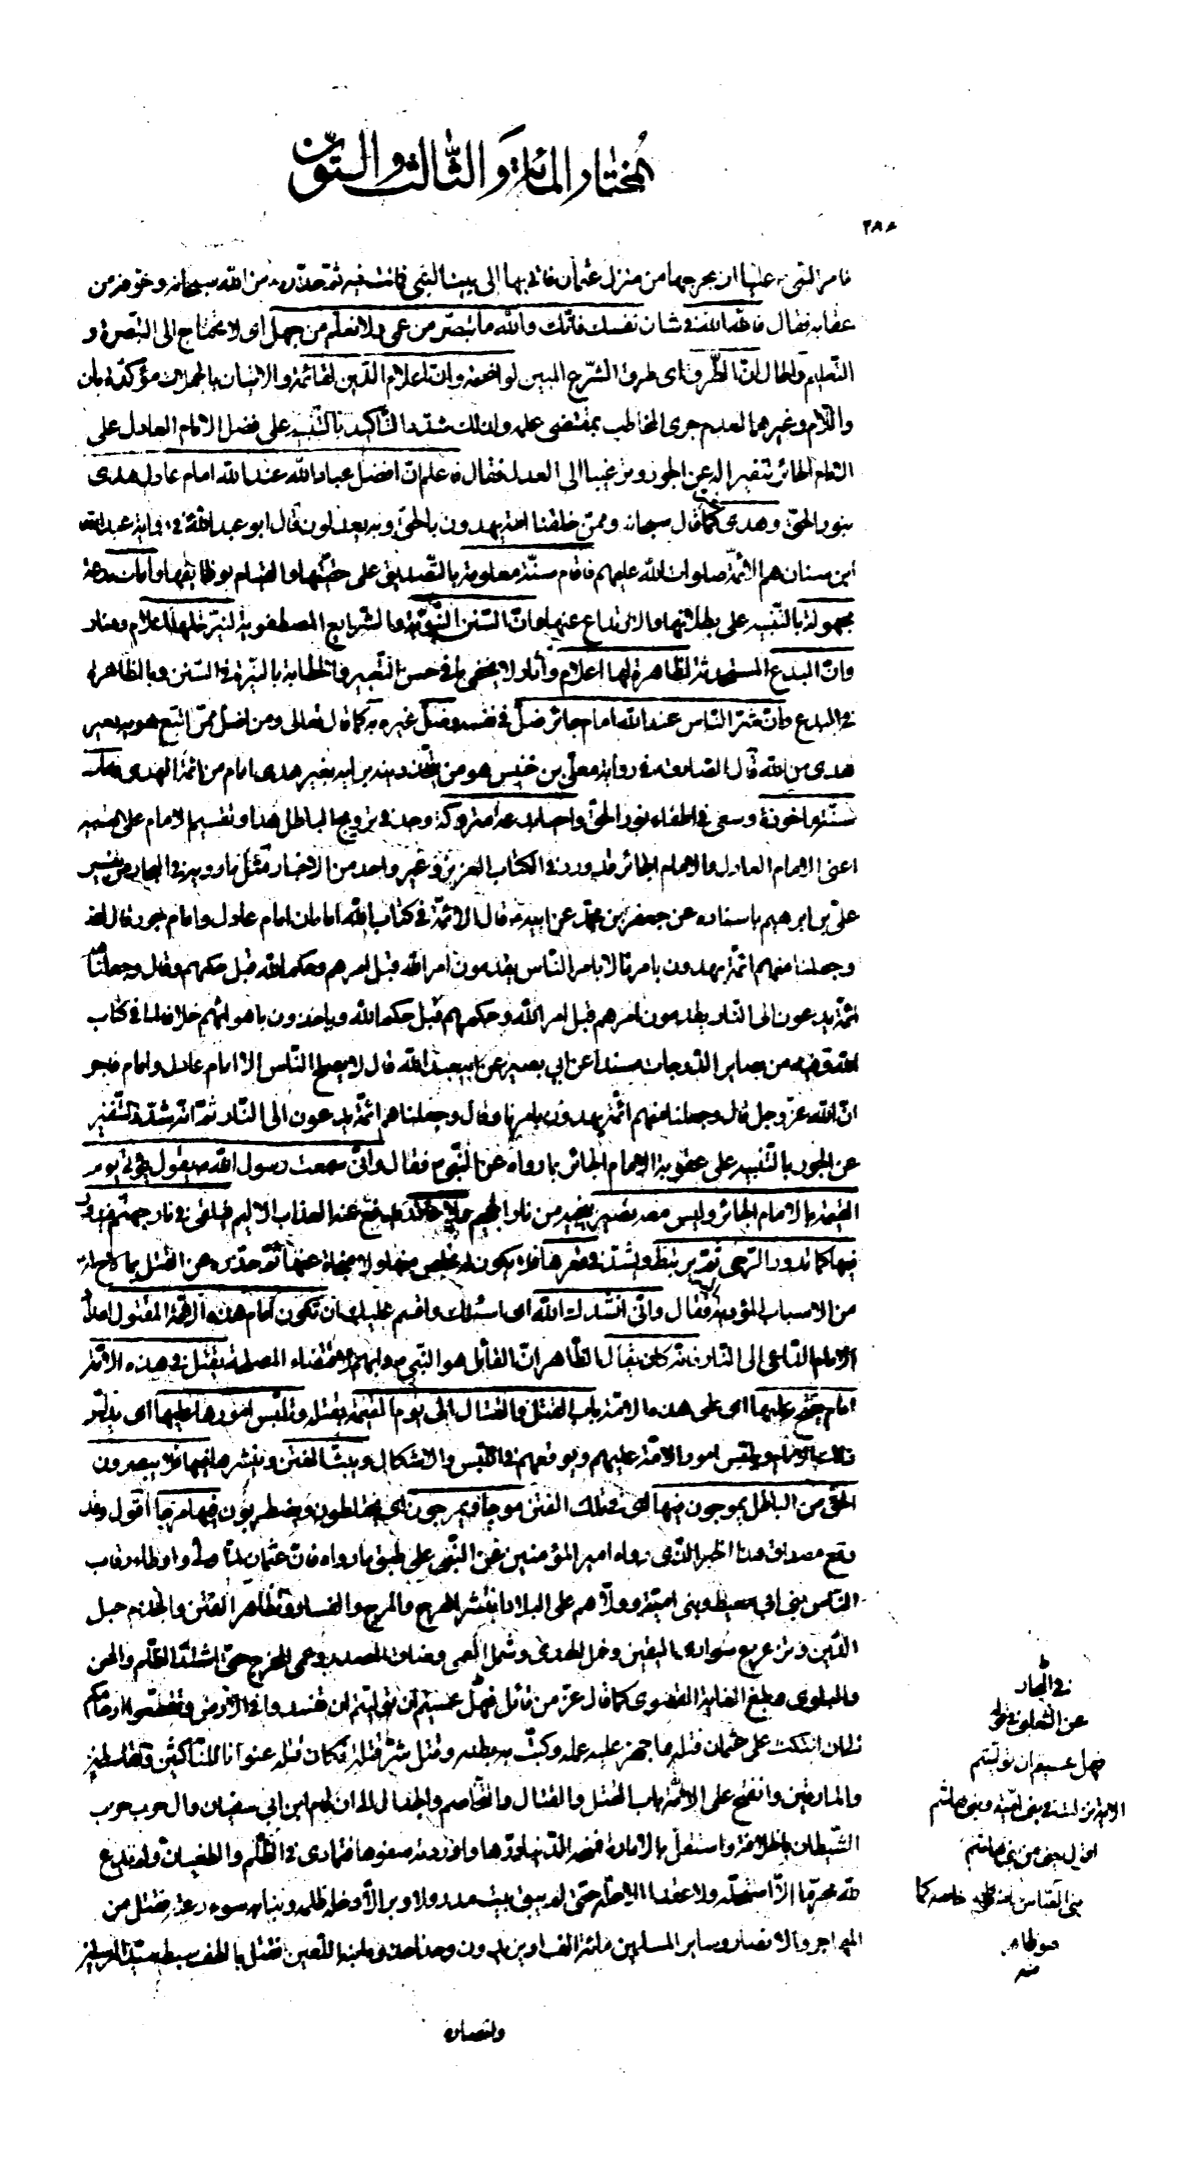 المختار المائة والثالث والستون
٢٨٨
فامر النبي عليا ان يخرجها من منزل عثمان فاتى بها إلى بيت النبي فماتت فيه ثم حذره من الله سبحانه وخوفه من
عقابه فقال فالله الله في شان نفسك فانك والله ما تبصر من عمى ولا تعلم من جهل اى لا تحتاج الى التبصرة و
التعليم والحال ان الطرق اى طرق الشرع المبين لواضحة وان اعلام الدين لقائمة والاتيان بالجملات مؤكدة بان
واللام وغيرهما لعدم جرى المخاطب بمقتضى علمه ولذلك شدد التأكيد بالتنبيه على فضل الامام العادل على
الامام الجائر تنفيرا له عن الجور وترغيبا الى العدل فقال فاعلم ان افضل عباد الله عند الله امام عادل هدى
بنور الحق وهدى كما قال سبحانه وممن خلقنا امة يهدون بالحق وبه يعدلون قال ابو عبد الله في رواية عبد الله
ابن سنان هم الائمة صلوات الله عليهم فاقام سنة معلومة بالتصديق على حقيتها والقيام بوظايفها وأمات بدعة
مجهولة بالتنبيه على بطلانها والارتداع عنها وان السنن النبوية والشرايع المصطفوية لنيرة لها اعلام ومنار
وان البدع المستحدثة لظاهرة لها اعلام وآثار ولا يخفى ما في حسن التعبير والخطابة بالنيرة في السنن وبالظاهرة
في البدع وان شر الناس عند الله امام جائر ضل في نفسه وضل غيره به كما قال تعالى ومن اضل ممن اتبع هويه بغير
هدى من الله قال الصادق في رواية معلى بن خنيس هو من يتخذ دينه برأيه بغير هدى امام من ائمة الهدى فامات
سنة ماخوذة وسعى في اطفاء نور الحق واحيا بدعة متروكة وجد في ترويج الباطل هذا وتقسيم الامام على قسمين
اعنى الامام العادل والامام الجائر قد ورد في الكتاب العزيز وغير واحد من الاخبار مثل ما رويه في البحار من تفسير
على بن ابرهيم باسناده عن جعفر بن محمد عن ابيه قال الائمة في كتاب الله امامان امام عادل وامام جور قال الله
وجعلنا منهم ائمة يهدون بامرنا لا بامر الناس يقدمون امر الله قبل امرهم وحكم الله قبل حكمهم وقال وجعلناهم
ائمة يدعون الى النار يقدمون امرهم قبل امر الله وحكمهم قبل حكم الله وياخذون باهوائهم خلافا لما في كتاب
الله وفيه من بصاير الدرجات مسندا عن ابي بصير عن ابي عبد الله قال لا يصلح الناس الا امام عادل وامام فاجر
ان الله عز وجل قال وجعلنا منهم ائمة يهدون بامرنا وقال وجعلناهم ائمة يدعون الى النار ثم انه شدة لتنفير
عن الجور بالتنبيه على عقوبة الامام الجائر بما رواه عن النبي فقال وانى سمعت رسول الله يقول يؤتى يوم
القيمة بالامام الجائر وليس معه نصير ينصره من نار الجحيم ولا عاذر يدفع عنه العذاب الاليم فيلقى في نار جهنم فيدور
فيها كما تدور الرحى ثم يرتبط ويشد في قعرها فلا يكون له مخلص منها ولا منجاة عنها ثم حذره عن القتل
من الاسباب المؤدية فقال وانى انشدك الله اى اسئلك واقسم عليك ان تكون امام هذه الامة المقتول
الامام الداعى الى النار فانه كان يقال الظاهر ان القائل هو النبي وابهم لاقتضاء المصلحة يقتل في هذه الامة
امام يفتح عليها اى على هذه الامة باب القتل والقتال الى يوم القيمة بقتله وتلبس امورها عليها اى
ذلك الامام ويلتبس امور الامة عليهم ويوقعهم في اللبس والاشكال ويبث الفتن وينشرها فيها فلا يبصرون
الحق من الباطل يموجون فيها اى في تلك الفتن موجا ويمرجون اى يختلطون ويضطربون فيها مرجا اقول وقد
وقع مصداق هذا الخبر الذى رواه امير المؤمنين عن النبي على طبق ما رواه فان عثمان لما
الناس بنى ابي معيط وبنى امية وولاهم على البلاد انتشر الهرج والمرج والفساد وتظاهر الفتن وانجذم حبل
الدين وتزعزع سوارى اليقين وخمل الهدى وشمل العمى وضاق المصدر وعمى المخرج حتى اشتد الظلم والمحن
والبلوى وبلغ الغاية القصوى كما قال عز من قائل فهل عسيتم ان توليتم ان تفسدوا في الارض وتقطعوا ارحامكم
انتكث على عثمان فتله واجهز عليه عمله وكبت به بطنته وقتل شر قتلة فكان قتله عنوانا للناكثين والقاسطين
والمارقين وانفتح على الامة باب القتل والقتال والتخاصم والجدال الى ان قام ابن ابي سفيان وآل حرب حزب
الشيطان بالخلافة واستقل بالامارة فمنحته الدنيا درها واوردته صفوها فتمادى في الظلم والطغيان ولم يدع
لله محرما الا استحله ولا عقدا الا حله حتى لم يبق بيت مدر ولا وبر الا دخله ظلمه ونبا به سوء رعيه فقتل من
المهاجر والانصار وساير المسلمين مائة الف او يزيدون وحذا حذوه ابنه اللعين فقتل بالطف سبط سيد المرسلين
وانصاره
في البحار
عن الثعلبى في قوله
فهل عسيتم ان توليتم
الاية نزلت في بنى امية وبنى هاشم
اقول يعنى من بنى هاشم
بنى العباس خاصة كما
هو ظاهر
منه